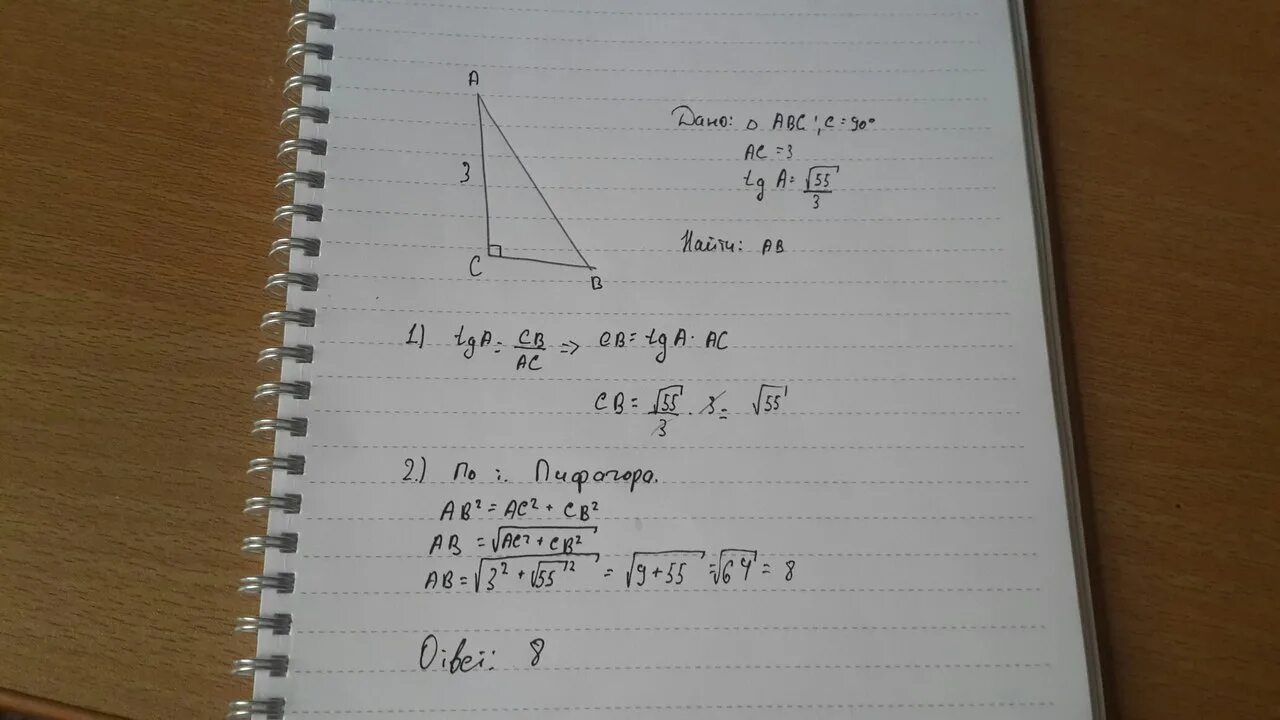 A
3
C
B
Дано: △ ABC; C = 90°
AC = 3
tg A = √55/3
Найти: AB
1) tgA = CB/AC => CB = tgA · AC
CB = √55/3 · 3 = √55
2.) По т. Пифагора.
AB² = AC² + CB²
AB = √(AC² + CB²)
AB = √(3² + √55²) = √(9+55) = √64 = 8
Ответ: 8